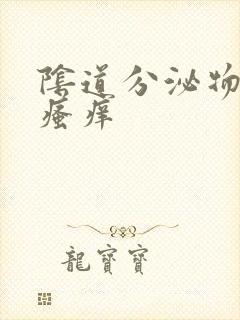 陰道分泌物
瘙痒
龍寶寶